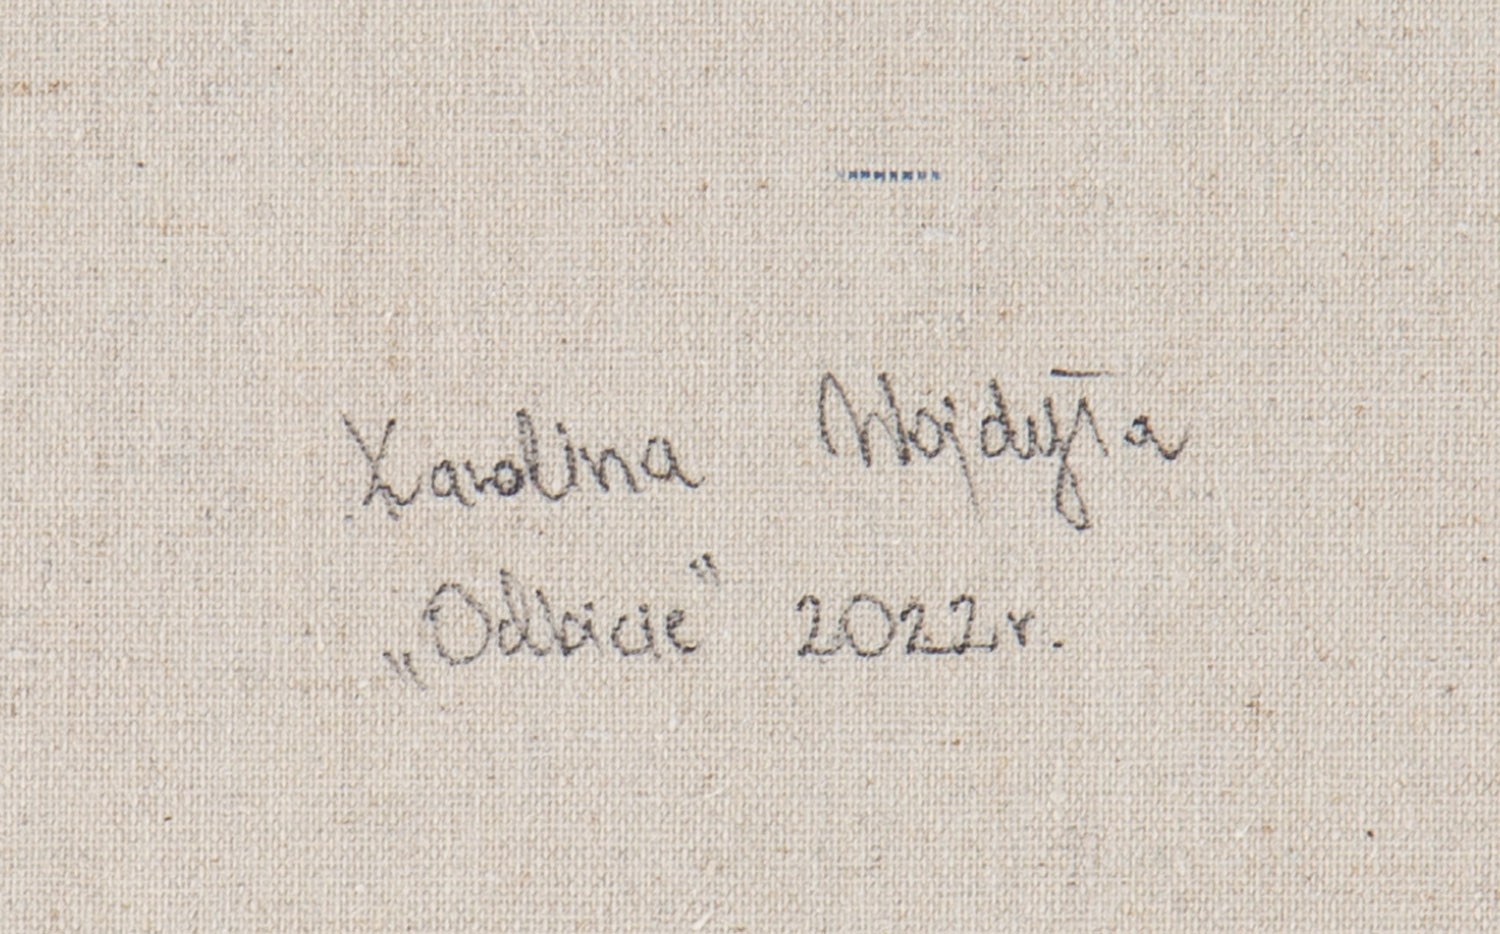 Karolina Wojdyła
„Odbicie” 2022r.